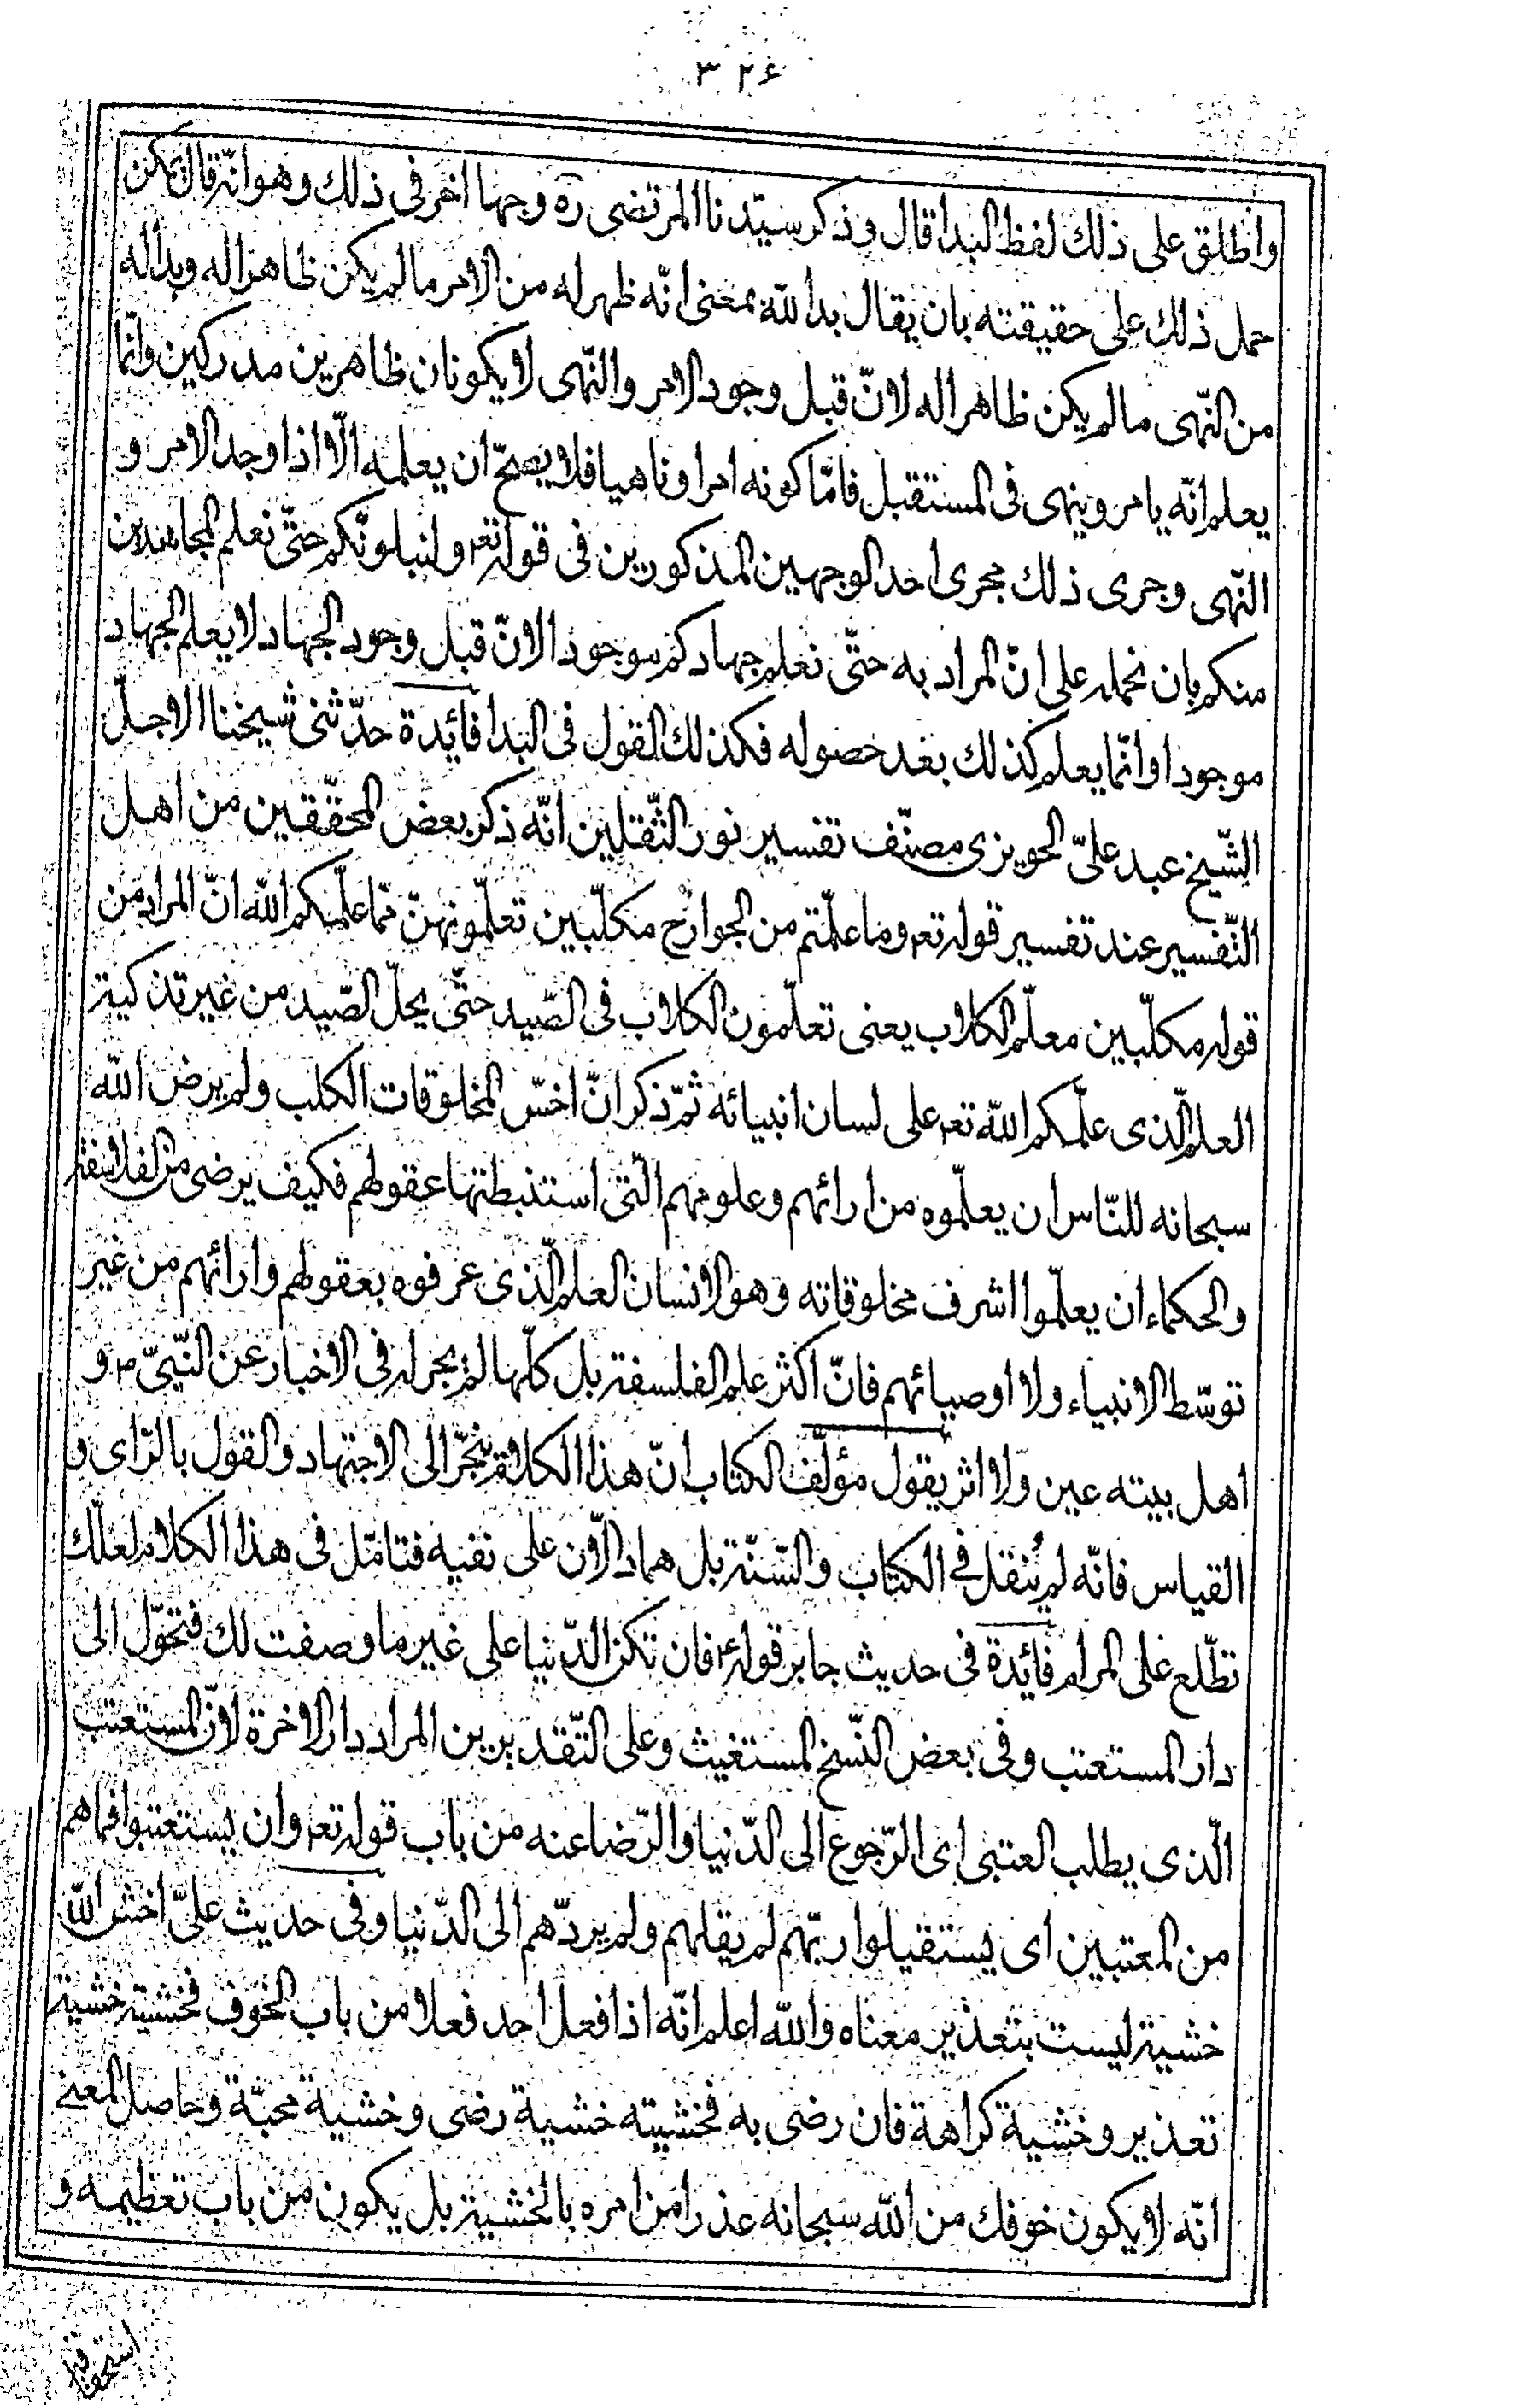 ٣٢۶
واطلق على ذلك لفظ البدا قال وذكر سيّدنا المرتضى ره وجها اخر فى ذلك وهو انّه قال يمكن
حمل ذلك على حقيقته بان يقال بدا للّه بمعنى انّه ظهر له من الامر مالم يكن ظاهرا له وبدا له
من النّهى مالم يكن ظاهرا له لانّ قبل وجود الامر والنّهى لا يكونان ظاهرين مدركين وانّما
يعلم انّه يامر وينهى فى المستقبل فامّا كونه امرا وناهيا فلا يصحّ ان يعلمه الّا اذا وجد الامر و
النّهى وجرى ذلك مجرى احد الوجهين المذكورين فى قوله تعم ولنبلونّكم حتّى نعلم المجاهدين
منكم بان نحمله على انّ المراد به حتّى نعلم جهادكم موجودا لانّ قبل وجود الجهاد لا يعلم الجهاد
موجودا وانّما يعلم كذلك بعد حصوله فكذلك القول فى البدا فائدة حدّثنى شيخنا الاجلّ
الشّيخ عبد علىّ الحويزى مصنّف تفسير نور الثّقلين انّه ذكر بعض المحقّقين من اهل
التّفسير عند تفسير قوله تعم وما علّمتم من الجوارح مكلّبين تعلّمونهنّ ممّا علّمكم اللّه انّ المراد من
قوله مكلّبين معلّم الكلاب يعنى تعلّمون الكلاب فى الصّيد حتّى يحلّ الصّيد من غير تذكية
العلم الّذى علّمكم اللّه تعم على لسان انبيائه ثمّ ذكر انّ اخسّ المخلوقات الكلب ولم يرض اللّه
سبحانه للنّاس ان يعلّموه من ارائهم وعلومهم الّتى استنبطتها عقولهم فكيف يرضى من الفلاسفة
والحكماء ان يعلّموا اشرف مخلوقاته وهو الانسان العلم الّذى عرفوه بعقولهم وارائهم من غير
توسّط الانبياء ولا اوصيائهم فانّ اكثر علم الفلسفة بل كلّها لم يجر له فى الاخبار عن النّبىّ ص و
اهل بيته عين ولا اثر يقول مؤلّف الكتاب انّ هذا الكلام ينجرّ الى الاجتهاد والقول بالرّاى و
القياس فانّه لم يُنقل فى الكتاب والسّنّة بل هما دالّان على نفيه فتامّل فى هذا الكلام لعلّك
تطّلع على المرام فائدة فى حديث جابر قوله ع فان تكن الدّنيا على غير ما وصفت لك فتحوّل الى
دار المستعتب وفى بعض النّسخ المستغيث وعلى التّقديرين المراد دار الاخرة لانّ المستعتب
الّذى يطلب العتبى اى الرّجوع الى الدّنيا والرّضا عنه من باب قوله تعم وان يستعتبوا فما هم
من المعتبين اى يستقيلوا ربّهم لم يقلهم ولم يردّهم الى الدّنيا وفى حديث علىّ اخش اللّه
خشية ليست بتعذير معناه واللّه اعلم انّه اذا فعل احد فعلا من باب الخوف فخشيته خشية
تعذير وخشية كراهة فان رضى به فخشيته خشية رضى وخشية محبّة وحاصل المعنى
انّه لا يكون خوفك من اللّه سبحانه عذرا من امره بالخشية بل يكون من باب تعظيمه و